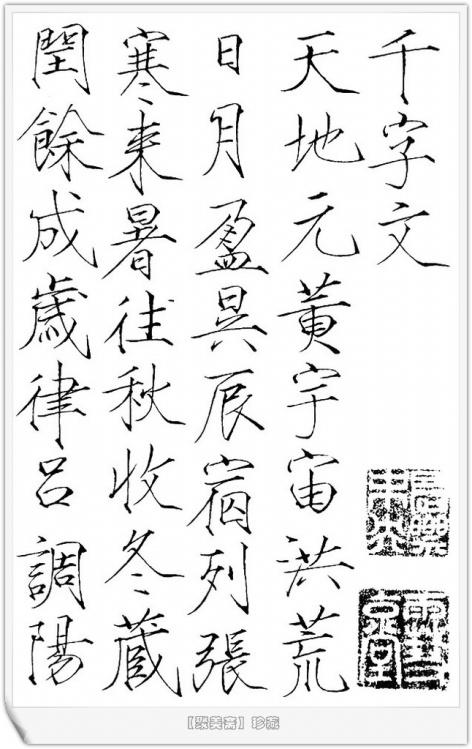 千字文
天地元黃宇宙洪荒
日月盈昃辰宿列張
寒来暑往秋收冬藏
閏餘成歲律呂調陽
【聚美斋】 珍藏